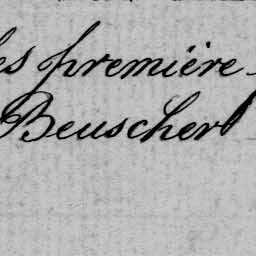 les première
Beuscher